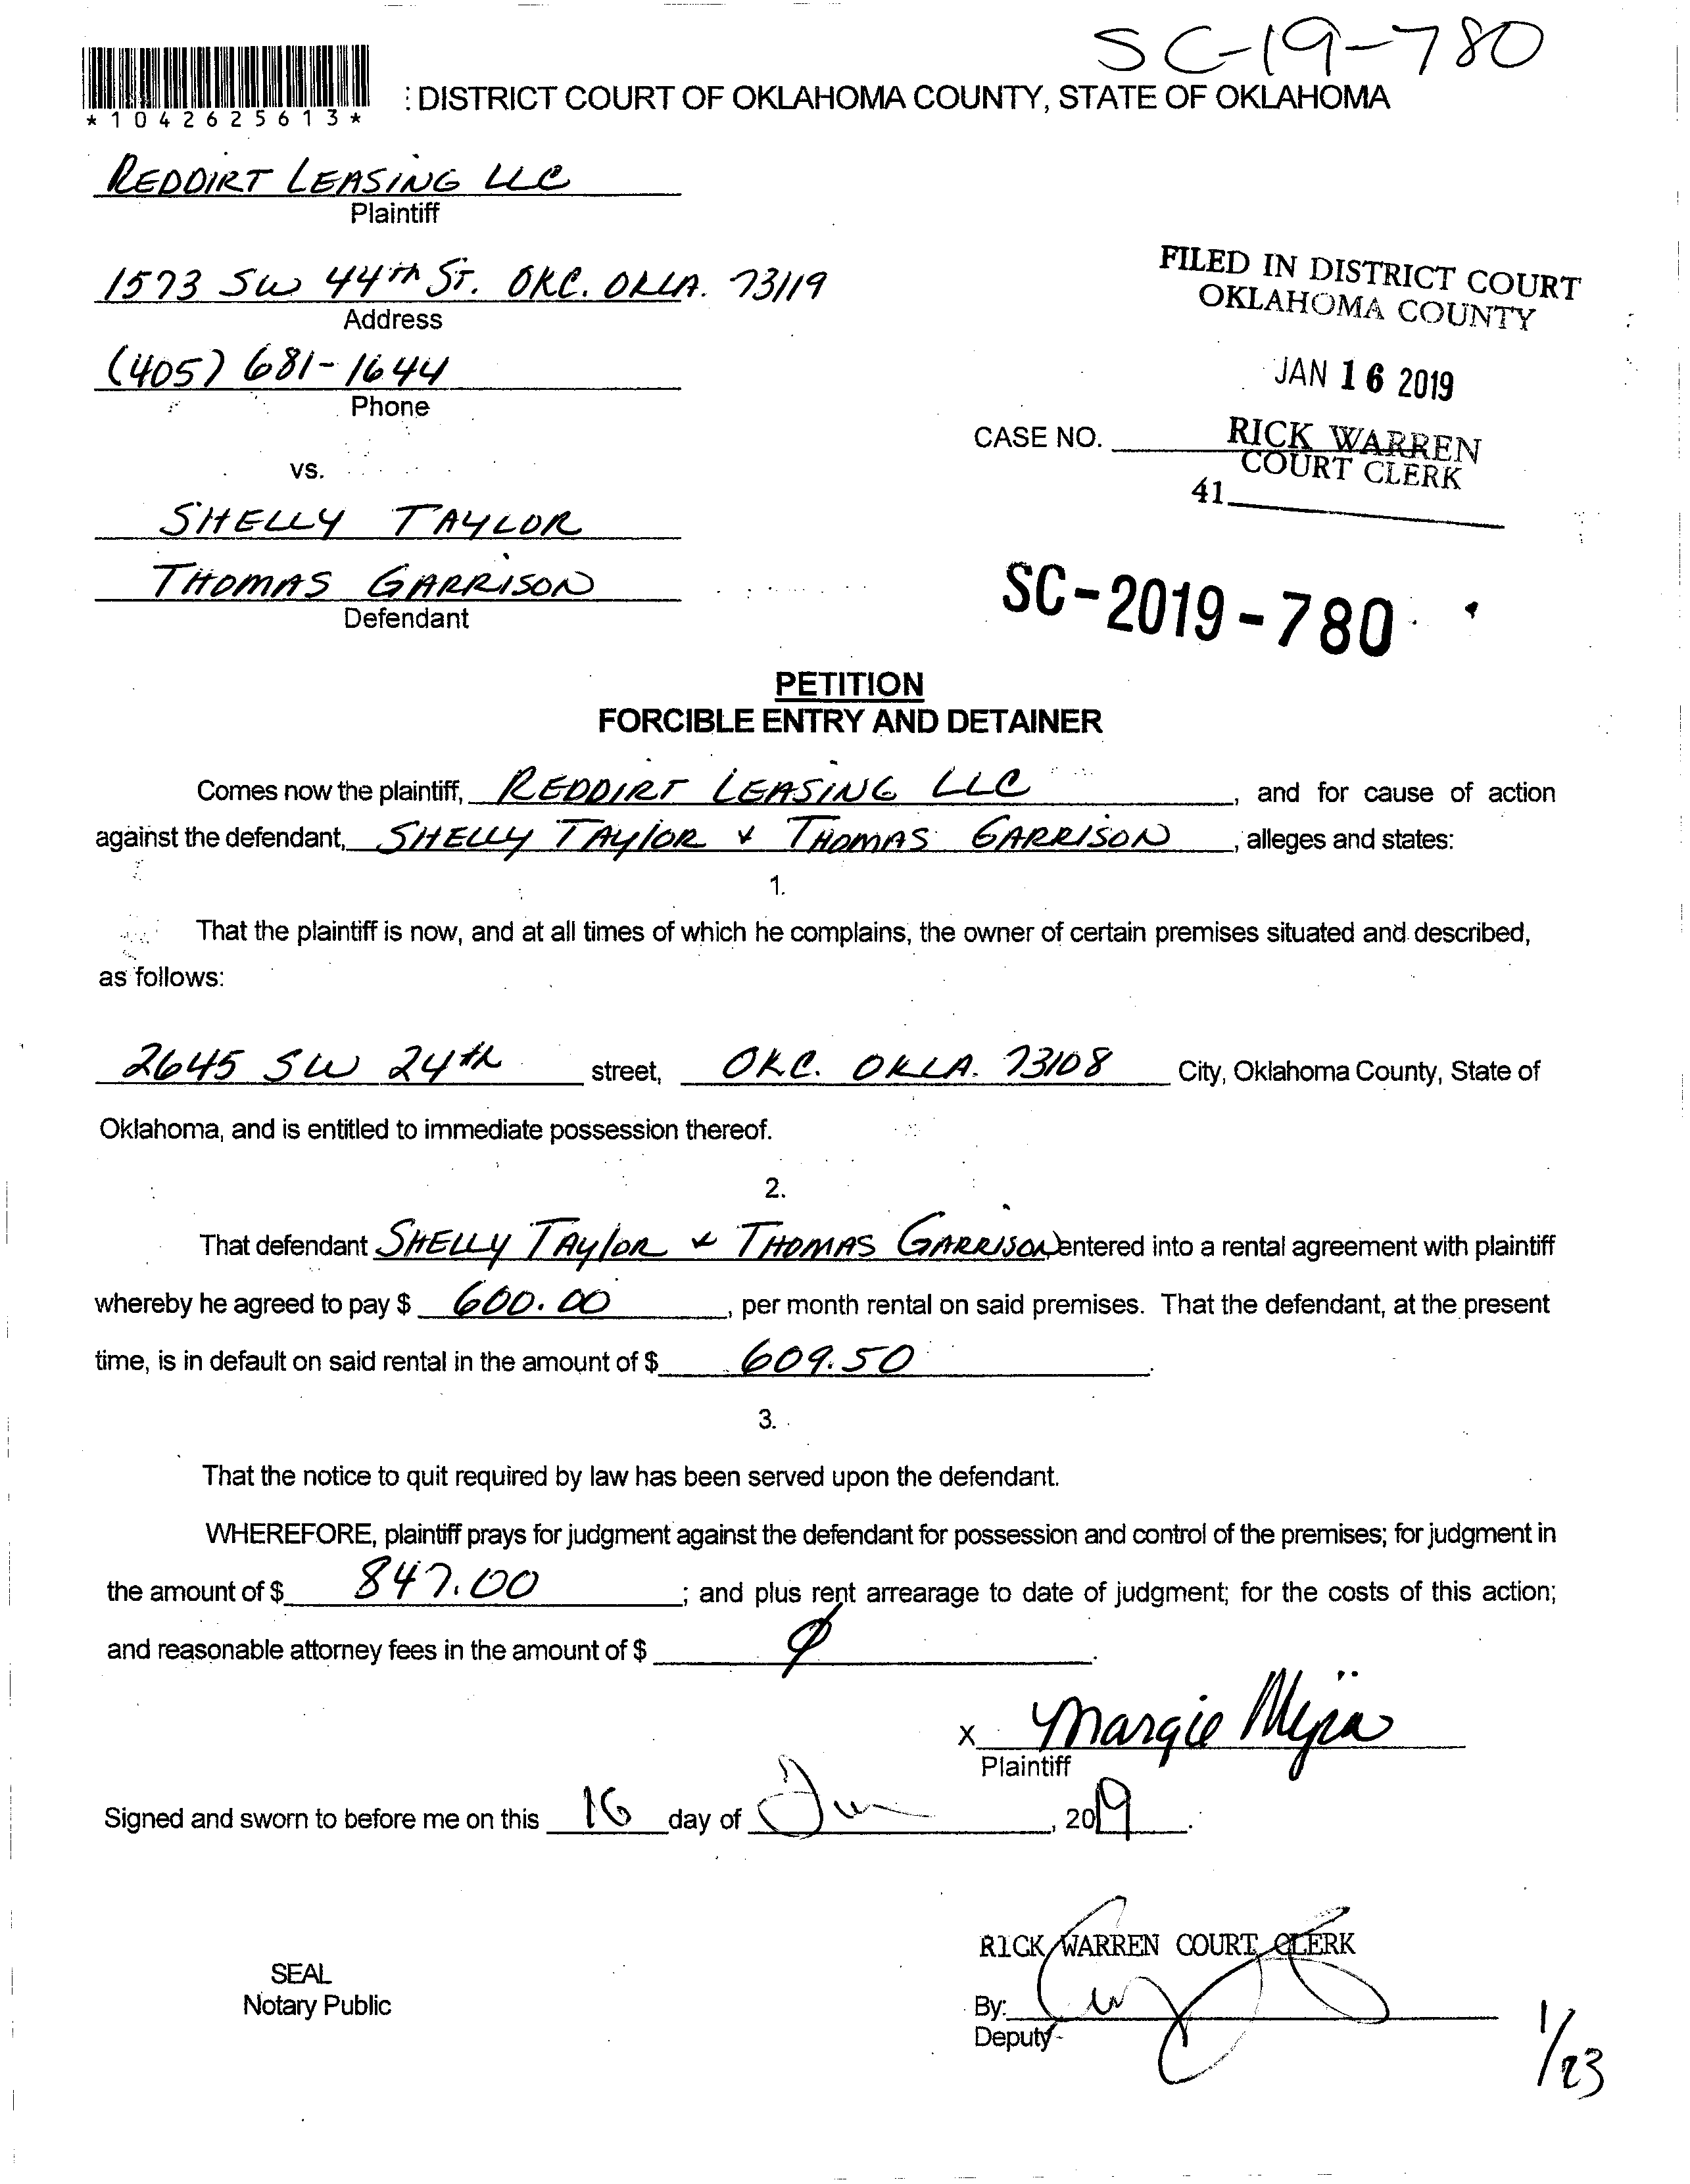 SC-19-780
*1042625613*
: DISTRICT COURT OF OKLAHOMA COUNTY, STATE OF OKLAHOMA
REDDIRT LEASING LLC
Plaintiff
1573 SW 44th ST. OKC. OKLA. 73119
Address
(405) 681-1644
Phone
vs.
SHELLY TAYLOR
THOMAS GARRISON
Defendant
FILED IN DISTRICT COURT
OKLAHOMA COUNTY
JAN 16 2019
CASE NO.
RICK WARREN
COURT CLERK
41
SC-2019-780
PETITION
FORCIBLE ENTRY AND DETAINER
Comes now the plaintiff, REDDIRT LEASING LLC, and for cause of action
against the defendant, SHELLY TAYLOR & THOMAS GARRISON, alleges and states:
1.
That the plaintiff is now, and at all times of which he complains, the owner of certain premises situated and described,
as follows:
2645 SW 24th street, OKC. OKLA. 73108 City, Oklahoma County, State of
Oklahoma, and is entitled to immediate possession thereof.
2.
That defendant SHELLY TAYLOR & THOMAS GARRISON entered into a rental agreement with plaintiff
whereby he agreed to pay $ 600.00, per month rental on said premises. That the defendant, at the present
time, is in default on said rental in the amount of $ 609.50.
3.
That the notice to quit required by law has been served upon the defendant.
WHEREFORE, plaintiff prays for judgment against the defendant for possession and control of the premises; for judgment in
the amount of $ 847.00; and plus rent arrearage to date of judgment; for the costs of this action;
and reasonable attorney fees in the amount of $ ø.
X Margie Mejia
Plaintiff
Signed and sworn to before me on this 16 day of Jan, 2019.
RICK WARREN COURT CLERK
SEAL
Notary Public
By:
Deputy
1/23